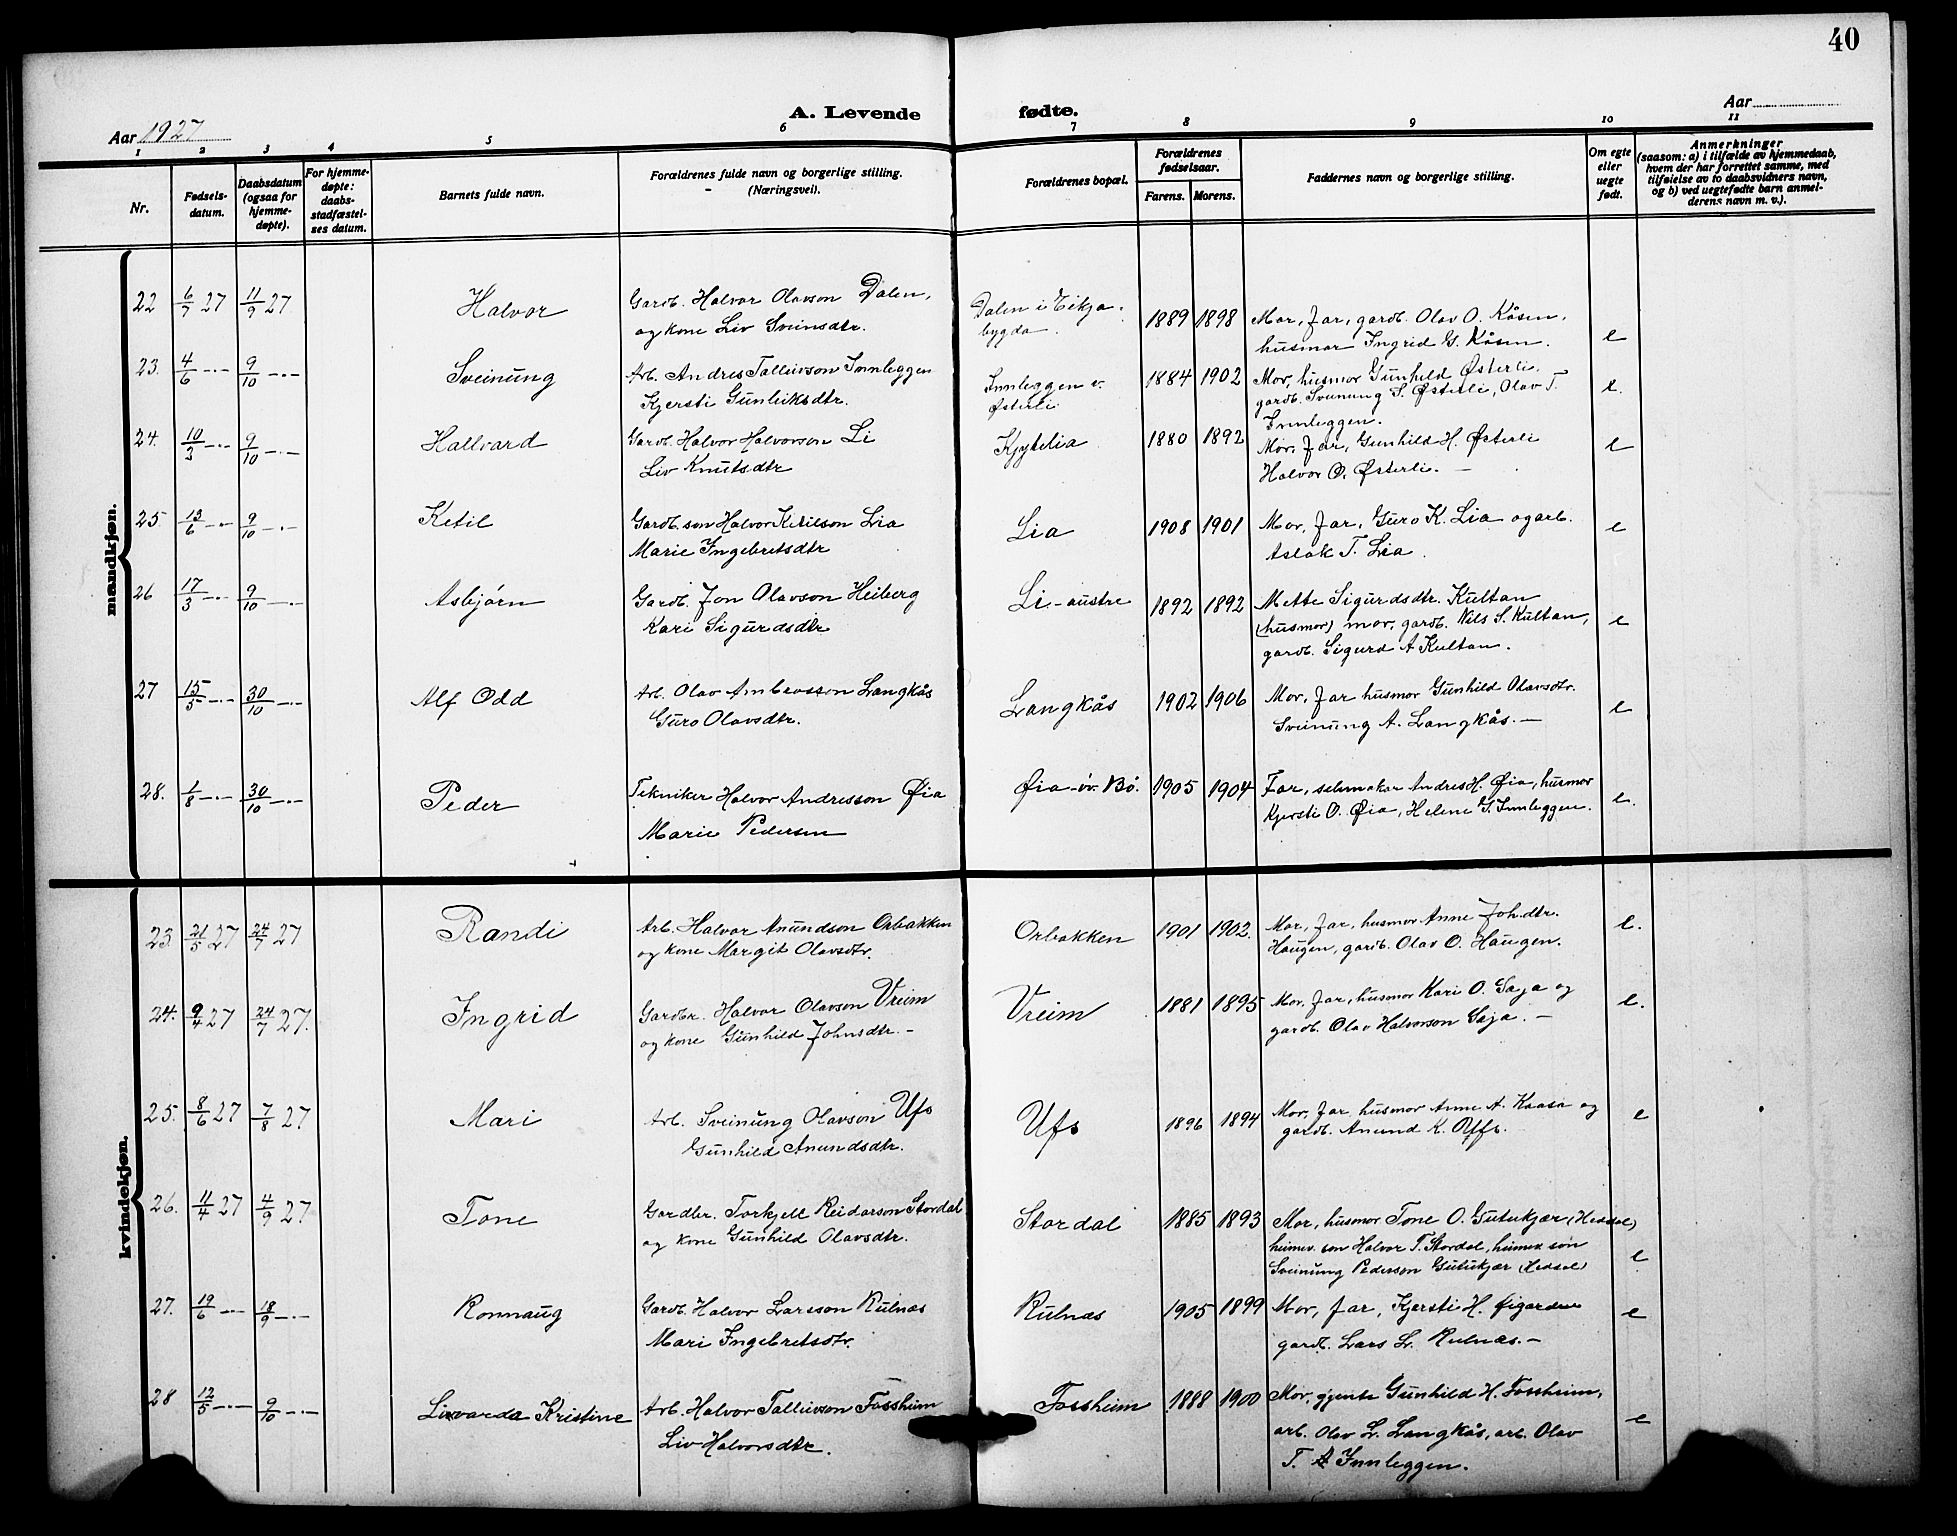 40
A. Levende fødte.
Aar 1927
Aar
1 2 3 4 5 6 7 8 9 10 11
Nr.
Fødsels-datum.
Daabsdatum (ogsaa for hjemme-døpte).
For hjemme-døpte: daabs-stadfæstel-ses datum.
Barnets fulde navn.
Forældrenes fulde navn og borgerlige stilling. (Næringsvei).
Forældrenes bopæl.
Forældrenes fødselsaar.
Farens. Morens.
Faddernes navn og borgerlige stilling.
Om egte eller uegte født.
Anmerkninger (saasom: a) i tilfælde av hjemmedaab, hvem der har forrettet samme, med tilføielse av to daabsvidners navn, og b) ved uegtefødte barn anmel-derens navn m. v.).
mandkjøn.
22 6/7 27 11/9 27 Halvor Gardb. Halvor Olavson Dalen, Dalen i Eikja- 1889 1898 Mor, Far, gardb. Olav O. Kåsen, e
og kone Liv Sveinsdtr. bygda. husmor Ingrid G. Kåsen.
23. 4/6 -"- 9/10 -"- Sveinung Arb. Andres Tallivson Innleggen Innleggen v. 1884 1902 Mor, husmor Gunhild Østerli, e.
Kjersti Gunleiksdtr. Østerli gardb. Sveinung S. Østerli, Olav T.
Innleggen.
24. 10/3 -"- 9/10 -"- Hallvard Gardb. Halvor Halvorson Li Kjykelia 1880 1892 Mor, Far, Gunhild H. Østerli e
Liv Knutsdtr Halvor O. Østerli. —
25. 13/6 -"- 9/10 -"- Ketil Gardb. son Halvor Ketilson Lia Lia 1908 1901 Mor, Far, Guro K. Lia og arb. e
Marie Ingebretsdtr Aslak T. Lia.
26 17/3 -"- 9/10 -"- Asbjørn Gardb. Jon Olavson Heiberg Li-austre 1892 1892 Mette Sigurdsdtr. Kultan
Kari Sigurdsdtr (husmor) mor, gardb. Nils S. Kultan, e
gardb. Sigurd A Kultan.
27 15/5 -"- 30/10 -"- Alf Odd Arb. Olav Ambrosson Langkås Langkås 1902 1906 Mor, Far husmor Gunhild Olavsdtr. e
Guro Olavsdtr. Sveinung A. Langkås. —
28. 1/8 -"- 30/10 -"- Peder Tekniker Halvor Andresson Øia Øia-øv. Bø. 1905 1904 Far, selemakar Andres H. Øia, husmor e.
Marie Pedersen Kjersti O. Øia, Helene G. Innleggen.
kvindekjøn.
23 21/5 27 24/7 27 Randi Arb. Halvor Anundson Orbakken Orbakken 1901 1902. Mor, Far, husmor Anne Joh.dtr. e.
og kone Margit Olavsdtr. Haugen, gardb. Olav O. Haugen.
24. 9/4 27 24/7 27. Ingrid Gardbr. Halvor Olavson Vreim Vreim 1881 1895 Mor, Far, husmor Kari O. Saga og e.
og kone Gunhild Johnsdtr. - gardb. Olav Halvorson Saga. —
25. 8/6 27 7/8 27 Mari Arb. Sveinung Olavson Ufs Ufs 1896 1894 Mor, Far, husmor Anne A. Kaasa og e
Gunhild Anundsdtr. gardb. Anund K. Uffs.
26. 11/4 27 4/9 27 Tone Gardbr. Torkjell Reidarson Stordal Stordal 1885 1893 Mor, husmor Tone O. Gutukjær (Heddal)
og kone Gunhild Olavsdtr. heimev. son Halvor T. Stordal, heimev son
Sveinung Pederson Gutukjær (Hedsal) e
27. 19/6 -"- 18/9 -"- Ronnaug Gardb. Halvor Larsson Rulnæs Rulnæs 1905 1899 Mor, Far, Kjersti H. Øigarden e
Mari Ingebretsdtr. gardb. Lars L. Rulnæs. —
28 12/5 -"- 9/10 -"- Livarda Kristine Arb. Halvor Tallivson Fossheim Fossheim 1888 1900 Mor, gjente Gunhild H. Fossheim,
Liv Halvorsdtr. arb. Olav L. Langkås, arb. Olav e
T. Innleggen.